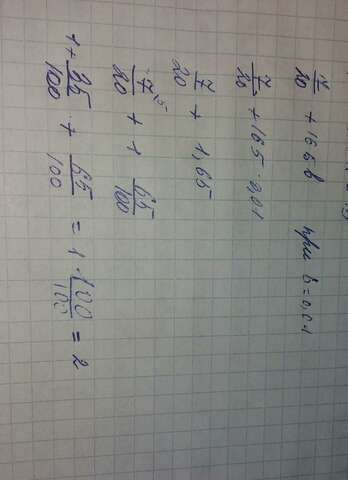 7/20 + 165 b при b = 0,01
7/20 + 165 · 0,01
7/20 + 1,65
7/20 ^5 + 1 65/100
1 + 35/100 + 65/100 = 1 100/100 = 2